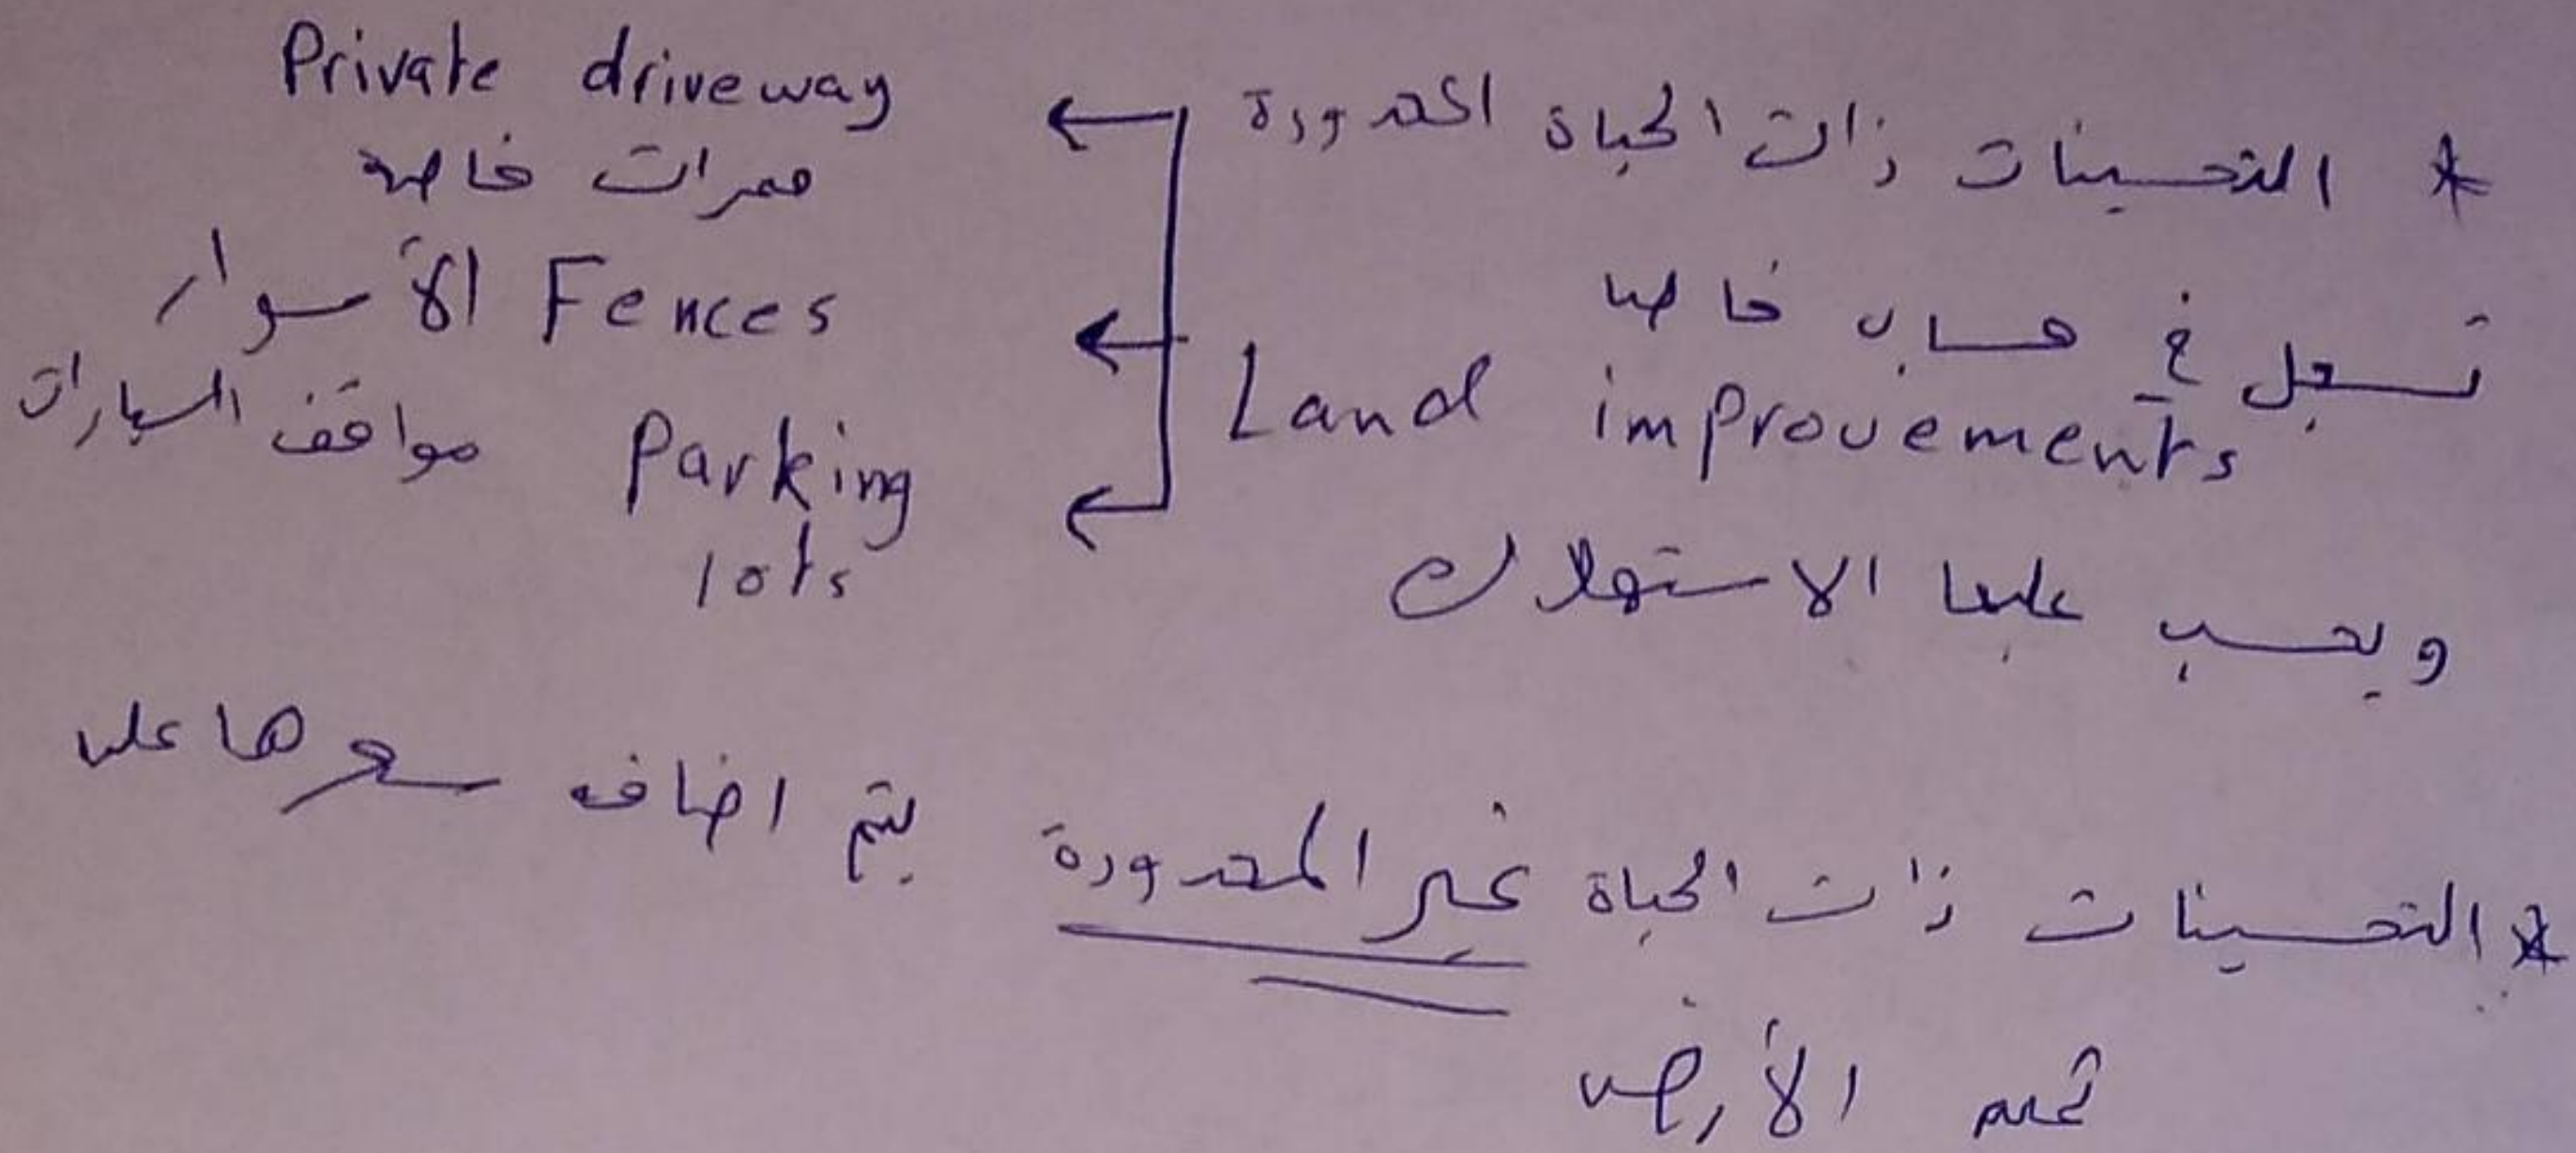 * التحسينات ذات الحياة المحدودة
تسجل في حساب خاص
Land improvements
ويحسب عليها الاستهلاك
Private driveway
ممرات خاصه
Fences الأسوار
Parking مواقف السيارات
lots
* التحسينات ذات الحياة غير المحدودة يتم اضافه سعرها على
قيمه الأرض